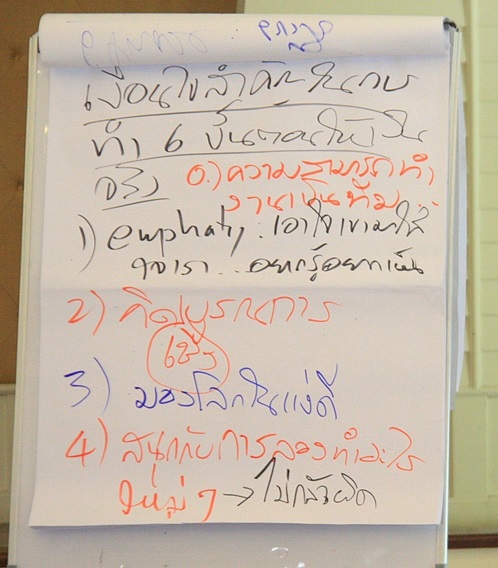 เงื่อนไขสำคัญในการ
ทำ 6 ขั้นตอนให้เป็น
จริง 0.) ความสามารถทำ
งานเป็นทีม
1) emphaty. เอาใจเขามาใส่
ใจเรา.. อยากรู้อยากเห็น
2) คิดบูรณาการ
3) มองโลกในแง่ดี
4) สนุกกับการลองทำอะไร
ใหม่ ๆ → ไม่กลัวผิด